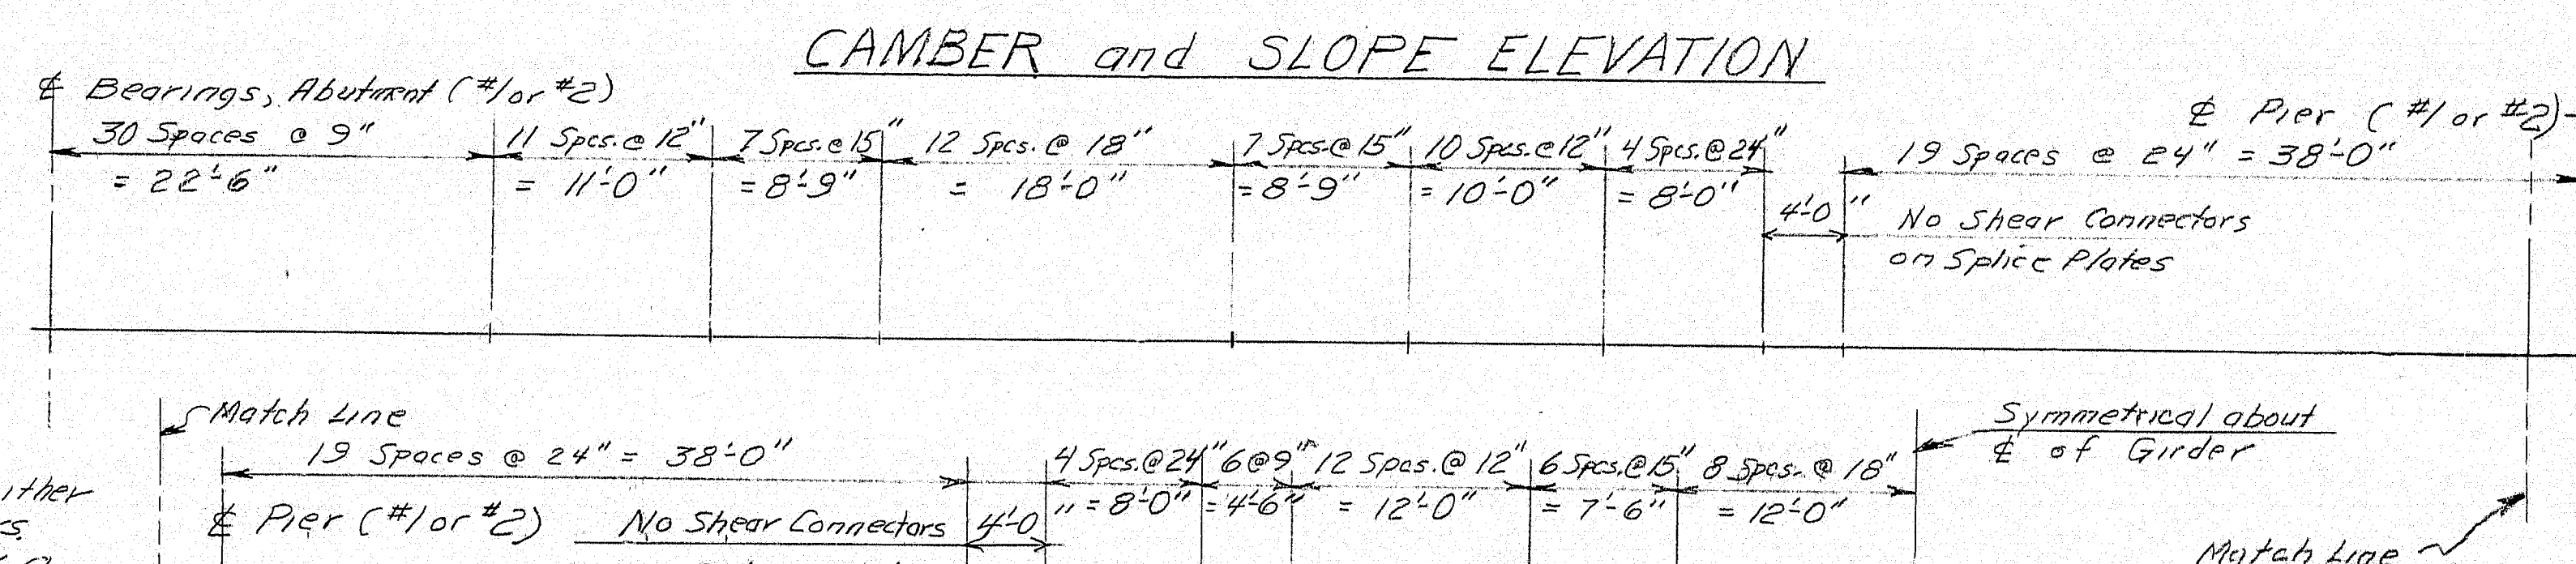 CAMBER and SLOPE ELEVATION
℄ Bearings, Abutment (#1 or #2)
℄ Pier (#1 or #2)
30 Spaces @ 9"
= 22'-6"
11 Spcs. @ 12"
= 11'-0"
7 Spcs. @ 15"
= 8'-9"
12 Spcs. @ 18"
= 18'-0"
7 Spcs. @ 15"
= 8'-9"
10 Spcs. @ 12"
= 10'-0"
4 Spcs. @ 24"
= 8'-0"
4'-0"
19 Spaces @ 24" = 38'-0"
No Shear Connectors
on Splice Plates
Match Line
19 Spaces @ 24" = 38'-0"
℄ Pier (#1 or #2)
No Shear Connectors
4'-0"
4 Spcs. @ 24"
= 8'-0"
6 @ 9"
= 4'-6"
12 Spcs. @ 12"
= 12'-0"
6 Spcs. @ 15"
= 7'-6"
8 Spcs. @ 18"
= 12'-0"
Symmetrical about
℄ of Girder
Match Line
ither
s.